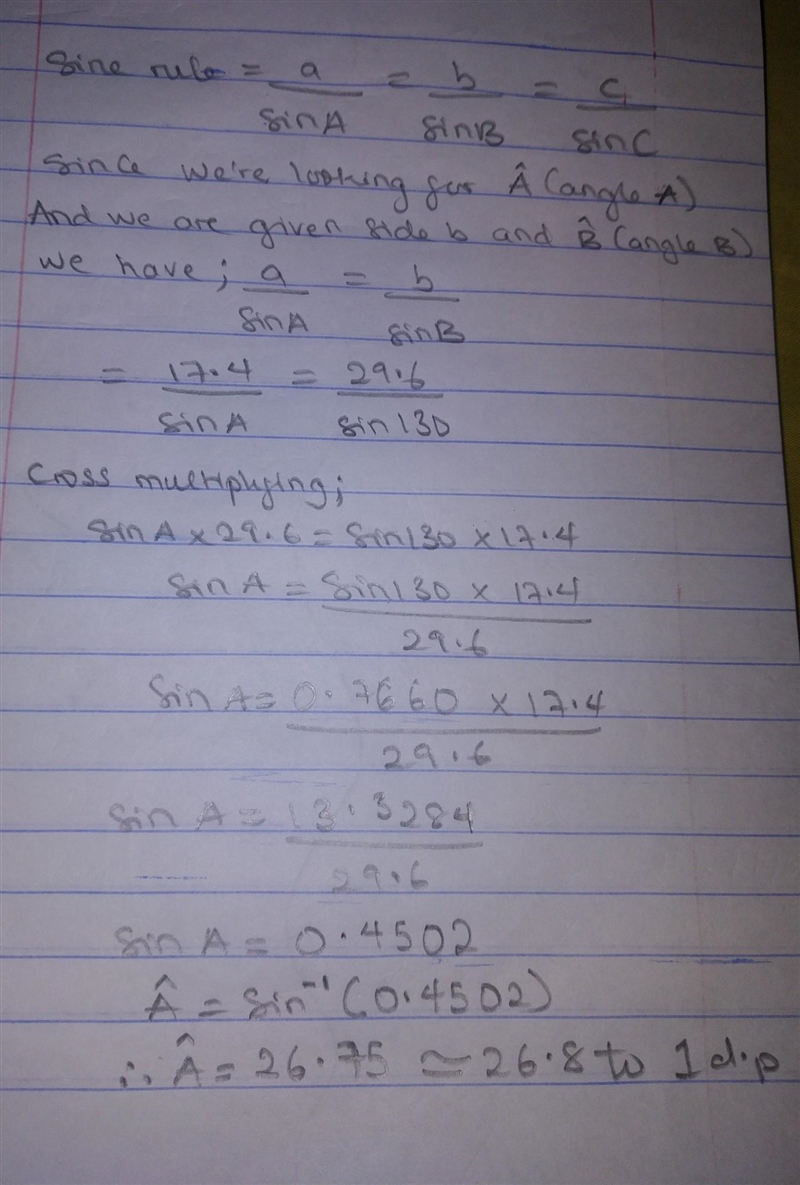 Sine rule = a/sinA = b/sinB = c/sinC
Since we're looking for Â (angle A)
And we are given side b and B̂ (angle B)
we have; a/sinA = b/sinB
= 17.4/sinA = 29.6/sin130
Cross multiplying;
sinA x 29.6 = sin130 x 17.4
sin A = sin130 x 17.4/29.6
sin A = 0.7660 x 17.4/29.6
sin A = 13.3284/29.6
sin A = 0.4502
Â = sin⁻¹(0.4502)
∴ Â = 26.75 ≃ 26.8 to 1d.p